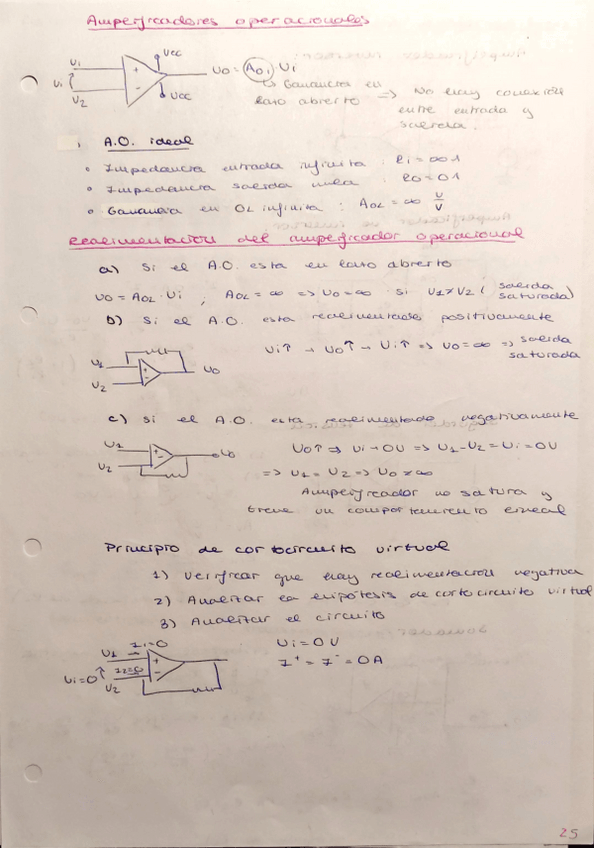 Amplificadores operacionales
Vcc
Vi
Vi Vo = AOL · Vi
V2 Vcc
↳ Ganancia en lazo abierto ⇒ No hay conexión entre entrada y salida.
A.O. ideal
• Impedancia entrada infinita : Ri = ∞ Ω
• Impedancia salida nula : Ro = 0 Ω
• Ganancia en OL infinita : AOL = ∞ V/V
Realimentación del amplificador operacional
a) Si el A.O. esta en lazo abierto
Vo = AOL · Vi , AOL = ∞ ⇒ Vo = ∞ si V1 ≠ V2 (salida saturada)
b) Si el A.O. esta realimentado positivamente
V1
V2 Vo
Vi ↑ → Vo ↑ → Vi ↑ ⇒ Vo = ∞ ⇒ salida saturada
c) Si el A.O. esta realimentado negativamente
V1
V2 Vo
Vo ↑ ⇒ Vi → 0V ⇒ V1 - V2 = Vi = 0V
⇒ V1 = V2 ⇒ Vo ≠ ∞
Amplificador no satura y
tiene un comportamiento lineal
Principio de cortocircuito virtual
1) Verificar que hay realimentación negativa
2) Analizar la hipótesis de cortocircuito virtual
3) Analizar el circuito
V1 I1=0
Vi=0 I2=0
V2
Vi = 0 V
I⁺ = I⁻ = 0A
25